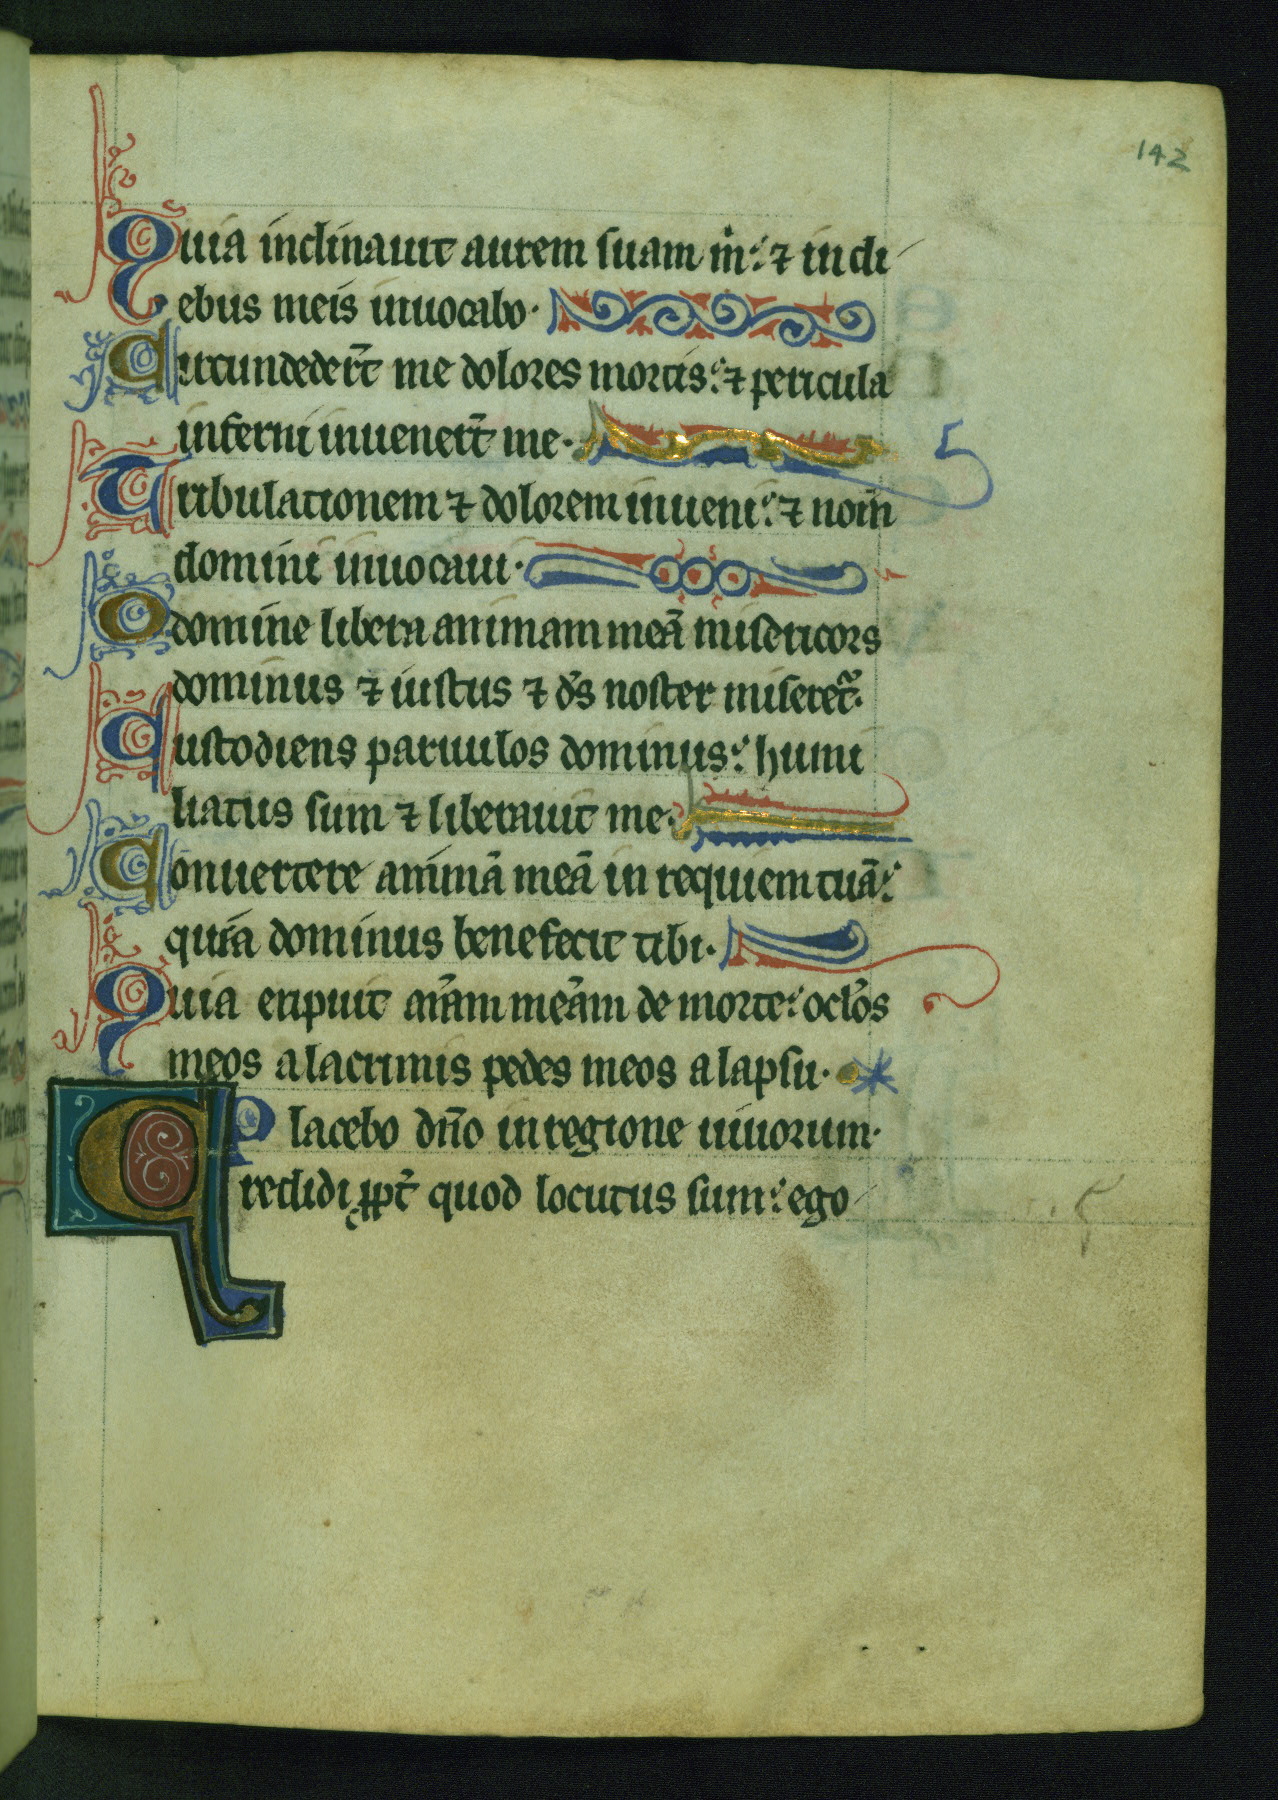 142
Quia inclinauit aurem suam m̉: ⁊ in di
ebus meis inuocabo·
Circumdeder̄t me dolores mortis: ⁊ pericula
inferni inuener̄t me·
Tribulationem ⁊ dolorem inueni: ⁊ nom̄
domini inuocaui·
O domine libera animam meā misericors
dominus ⁊ iustus ⁊ d̄s noster miseret᷑·
Custodiens paruulos dominus: humi
liatus sum ⁊ liberauit me·
Conuertere animā meā in requiem tuā:
quia dominus benefecit tibi·
Quia eripuit ām̄am meam de morte: oclōs
meos a lacrimis pedes meos a lapsu·
Placebo dn̄o in regione uiuorum·
Credidi ꝓpt̄ quod locutus sum: ego